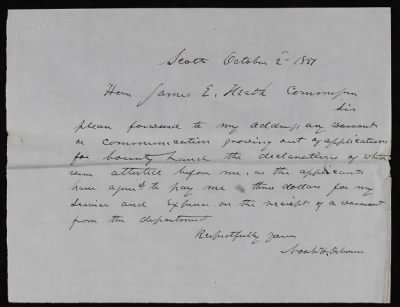 Scott October 2nd 1851
Hon. James E. Heath Commissn
Sir
please forward to my address any warrant
or communication growing out of applications
for bounty Land the declarations of which
were attested before me, as the applicants
have agreed to pay me three dollars for my
service and Expense on the receipt of a warrant
from the department
Respectfully yours
Noah H. Osborn